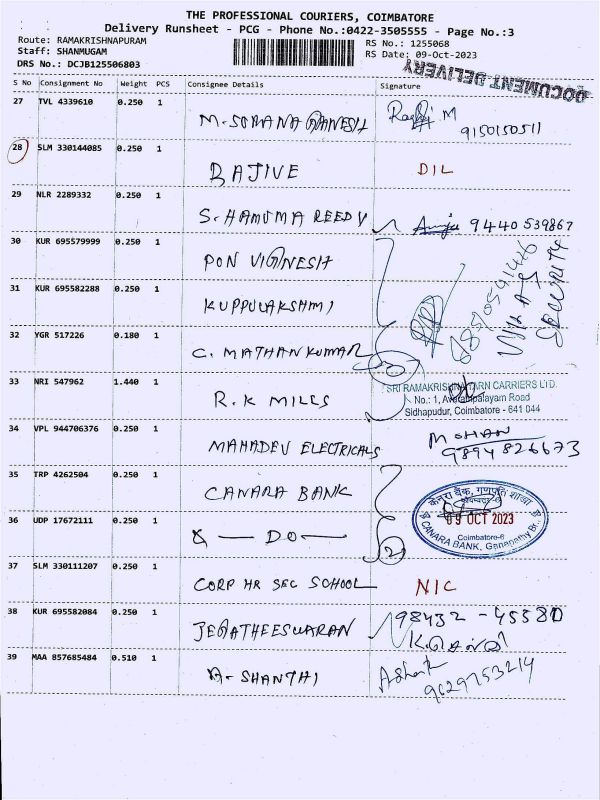 THE PROFESSIONAL COURIERS, COIMBATORE
Delivery Runsheet - PCG - Phone No.:0422-3505555 - Page No.:3
Route: RAMAKRISHNAPURAM
RS No.: 1255068
Staff: SHANMUGAM
RS Date: 09-Oct-2023
DRS No.: DCJB125506803
DOCUMENT DELIVERY
S No Consignment No Weight PCS Consignee Details Signature
27 TVL 4339610 0.250 1 M-SORANA GANESH M 9150150511
28 SLM 330144085 0.250 1 RAJIVE DIL
29 NLR 2289332 0.250 1 S. HANUMA REEDY 9440539867
30 KUR 695579999 0.250 1 PON VIGNESH
31 KUR 695582288 0.250 1 KUPPULAKSHMI
SECURITY
32 YGR 517226 0.180 1 C. MATHANKUMAR
33 NRI 547962 1.440 1 R.K MILLS
SRI RAMAKRISHNA YARN CARRIERS LTD.
No.: 1, Avarampalayam Road
Sidhapudur, Coimbatore - 641 044
34 VPL 944706376 0.250 1 MAHADEV ELECTRICALS MOHAN
9894826673
35 TRP 4262504 0.250 1 CANARA BANK
केनरा बैंक, गणपति शाखा
09 OCT 2023
Coimbatore-6
CANARA BANK, Ganapathy Br.,
36 UDP 17672111 0.250 1 DO 2
37 SLM 330111207 0.250 1 CORP HR SEC SCHOOL NIC
38 KUR 695582084 0.250 1 JEGATHEESWARAN 98432-45580
39 MAA 857685484 0.510 1 A-SHANTHI Ashok
9629753214